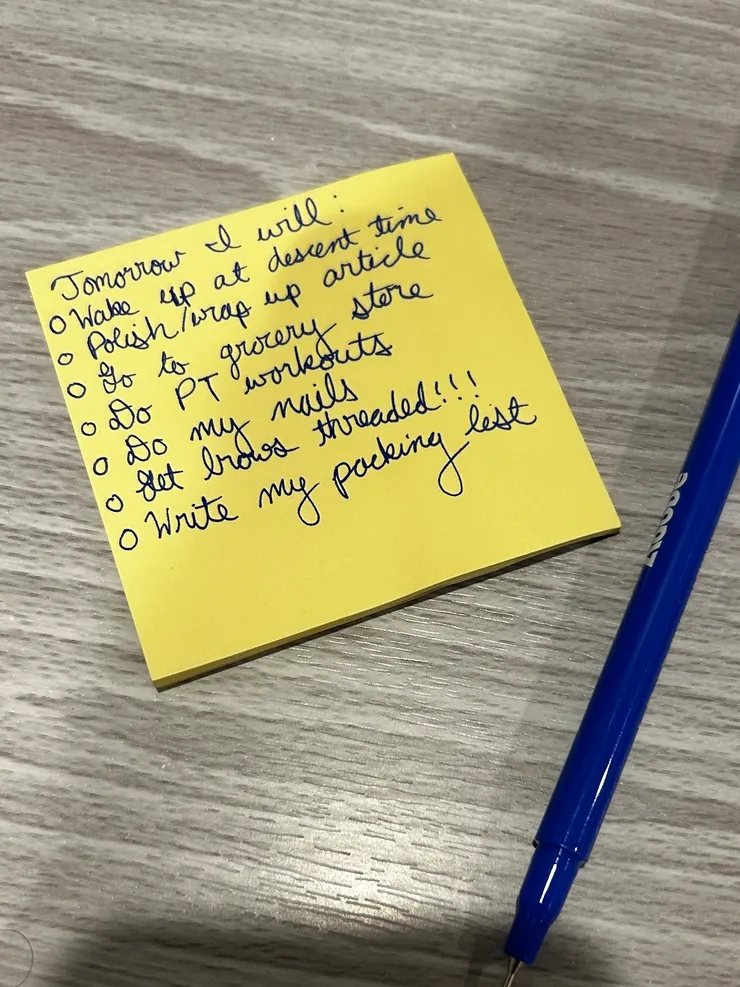 Tomorrow I will:
o Wake up at descent time
o Polish/wrap up article
o Go to grocery store
o Do PT workouts
o Do my nails
o Get brows threaded!!!
o Write my packing list